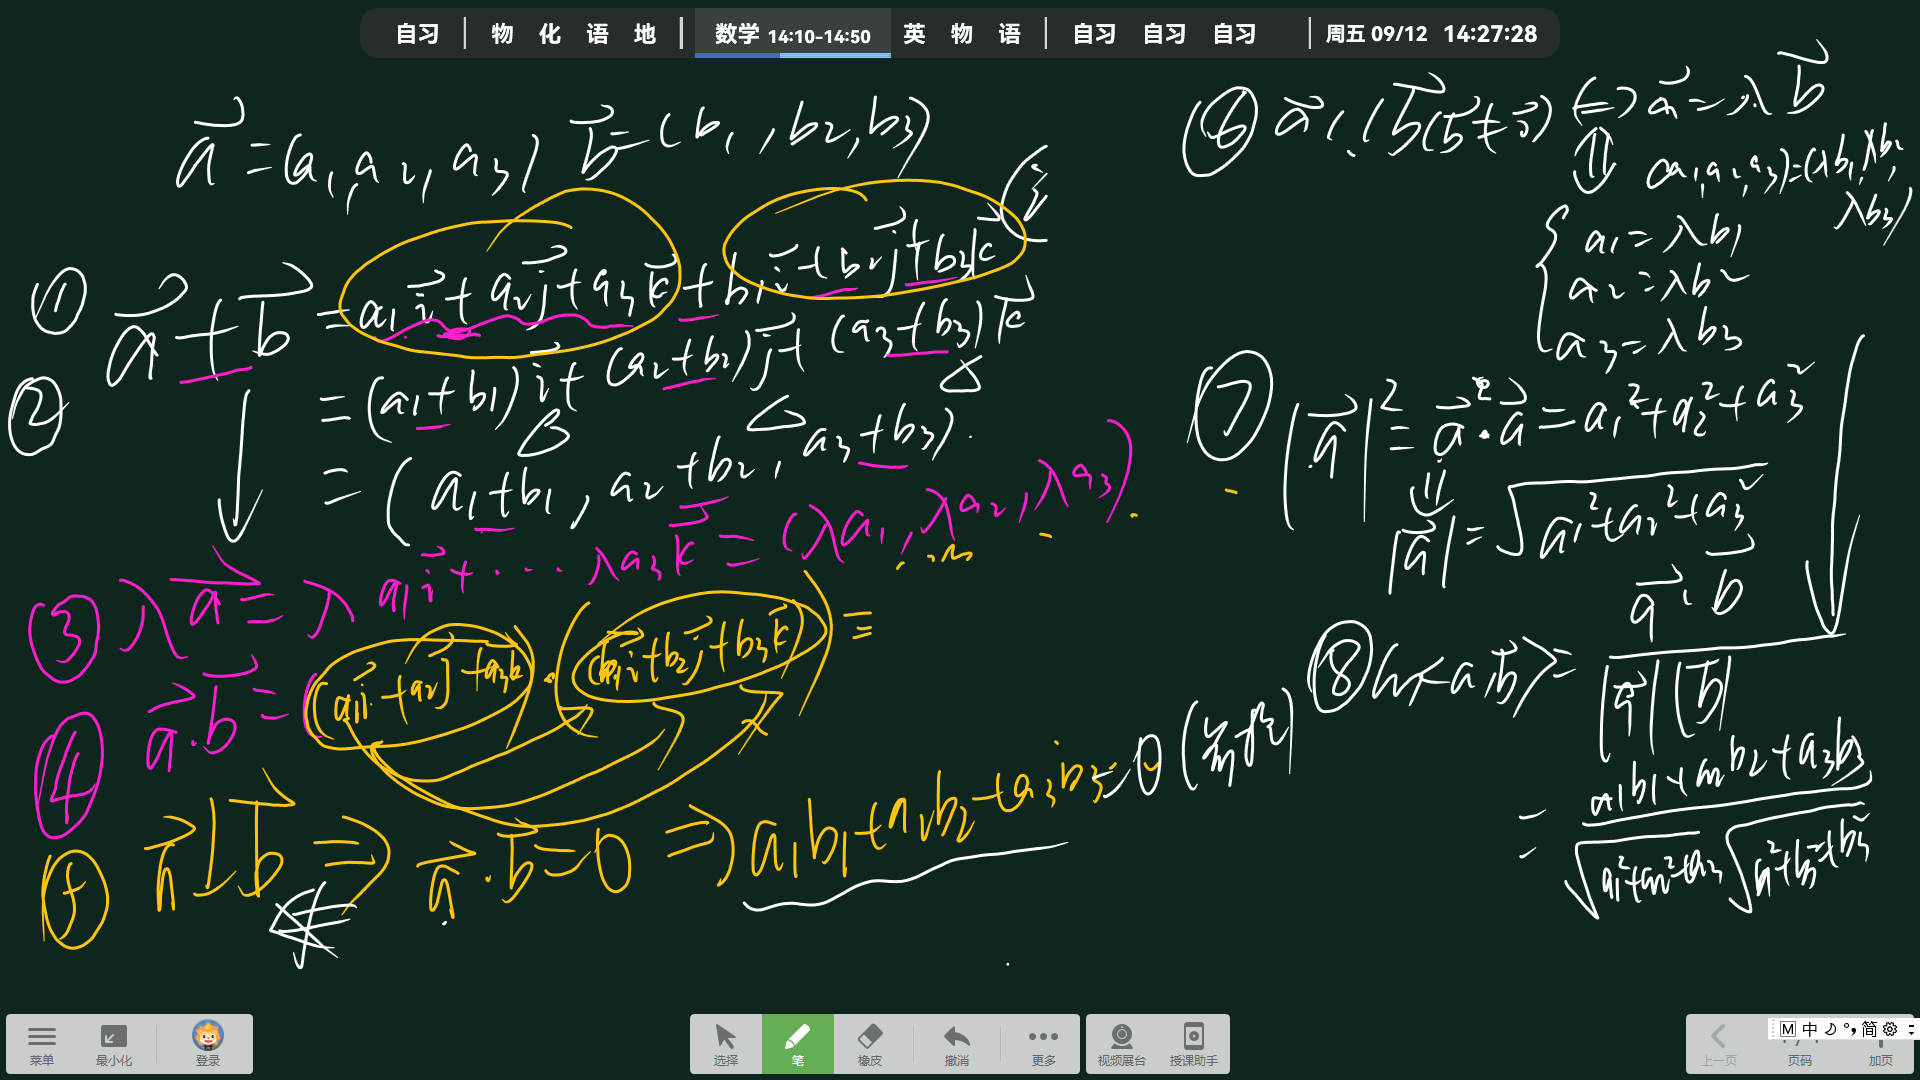 自习 | 物 化 语 地 | 数学 14:10-14:50 英 物 语 | 自习 自习 自习 | 周五 09/12 14:27:28
a⃗=(a₁,a₂,a₃) b⃗=(b₁,b₂,b₃)
① a⃗+b⃗=a₁i⃗+a₂j⃗+a₃k⃗+b₁i⃗+b₂j⃗+b₃k⃗
②
=(a₁+b₁)i⃗+(a₂+b₂)j⃗+(a₃+b₃)k⃗
=(a₁+b₁,a₂+b₂,a₃+b₃).
③ λa⃗=λa₁i⃗+...λa₃k⃗=(λa₁,λa₂,λa₃)
④ a⃗.b⃗=(a₁i⃗+a₂j⃗+a₃k⃗).(b₁i⃗+b₂j⃗+b₃k⃗)=
⑤ a⃗⊥b⃗⇒a⃗·b⃗=0⇒a₁b₁+a₂b₂+a₃b₃=0
⑥ a⃗//b⃗(b⃗≠0⃗)⇔a⃗=λb⃗
⇓ (a₁,a₂,a₃)=(λb₁,λb₂,λb₃)
a₁=λb₁
a₂=λb₂
a₃=λb₃
⑦ |a⃗|²=a⃗·a⃗=a₁²+a₂²+a₃²
⇓
|a⃗|=√a₁²+a₂²+a₃²
⑧ cos<a⃗,b⃗>=a⃗·b⃗/|a⃗||b⃗|
=a₁b₁+a₂b₂+a₃b₃/√a₁²+a₂²+a₃²√b₁²+b₂²+b₃²
菜单 最小化 登录 选择 笔 橡皮 撤消 更多 视频展台 授课助手 上一页 页码 加页
M 中 简